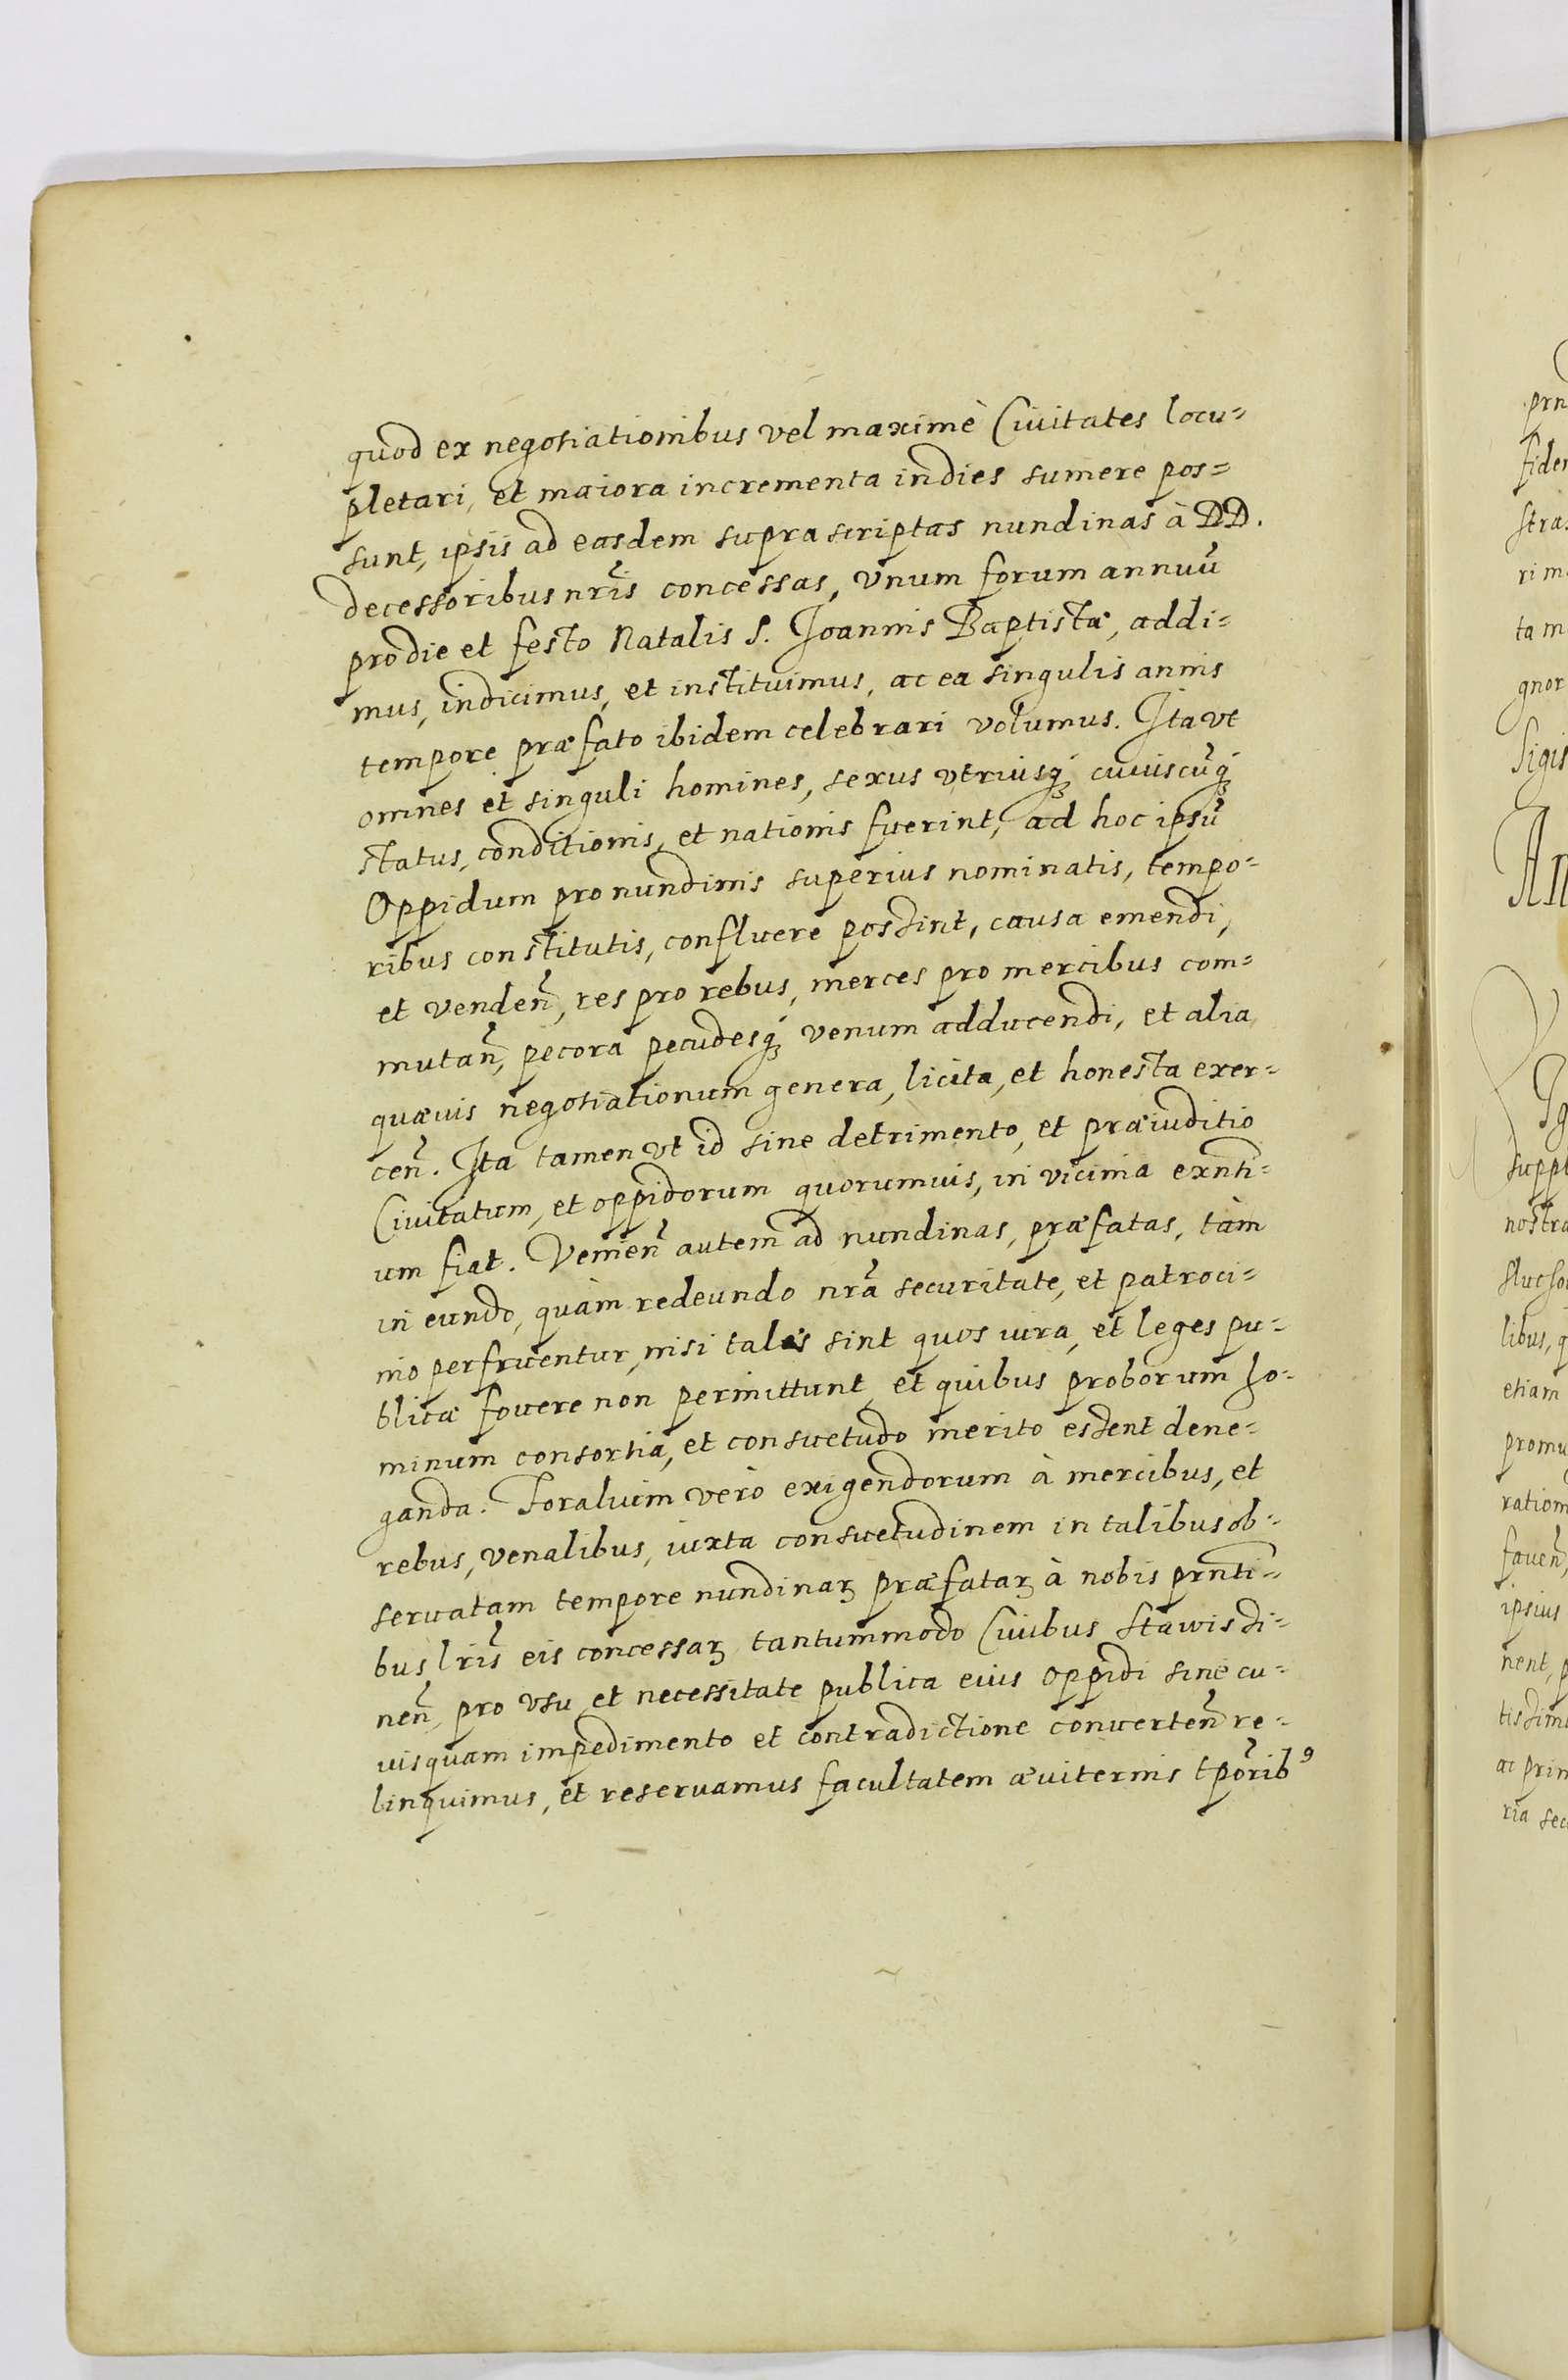 quod ex negotiationibus vel maximè Ciuitates locu=
pletari, et maiora incrementa indies sumere pos=
sunt, ipsis ad easdem supra scriptas nundinas à DD.
decessoribus nr̃is concessas, vnum forum annuũ
pro die et festo Natalis S. Joannis Baptistæ, addi=
mus, indicimus, et instituimus, ac ea singulis annis
tempore præfato ibidem celebrari volumus. Ita vt
omnes et singuli homines, sexus vtriusq́ʒ cuiuscũq́ʒ
status, conditionis, et nationis fuerint, ad hoc ipsũ
Oppidum pro nundinis superius nominatis, tempo=
ribus constitutis, confluere possint, causa emendi,
et vendeñ, res pro rebus, merces pro mercibus com=
mutañ, pecora pecudesq́ʒ venum adducendi, et alia
quæuis negotiationum genera, licita, et honesta exer=
ceñ. Ita tamen vt id sine detrimento, et præiuditio
Ciuitatum, et oppidorum quorumuis, in vicinia exñti=
um fiat. Venieñ autem ad nundinas, præfatas, tàm
in eundo, quàm redeundo nr̃a securitate, et patroci=
nio perfruentur, nisi tales sint quos iura, et leges pu=
blicæ fouere non permittunt, et quibus proborum ho=
minum consortia, et consuetudo merito essent dene=
ganda. Foralium verò exigendorum à mercibus, et
rebus, venalibus, iuxta consuetudinem in talibus ob=
seruatam tempore nundinaꝝ præfataꝝ à nobis prñti=
bus lr̃is eis concessaꝝ tantummodo Ciuibus Stawisdi=
neñ, pro vsu et necessitate publica eius Oppidi sine cu=
uisquam impedimento et contradictione conuerteñ re=
linquimus, et reseruamus facultatem æuiternis tp̃oribꝰ
prn
fider
stras
rim
tam
gnor
Sigis
An
suppl
nostra
libus, q
etiam
promu
ration
faueñ,
ipsius
nent, p
tissim
ac prin
ria sec